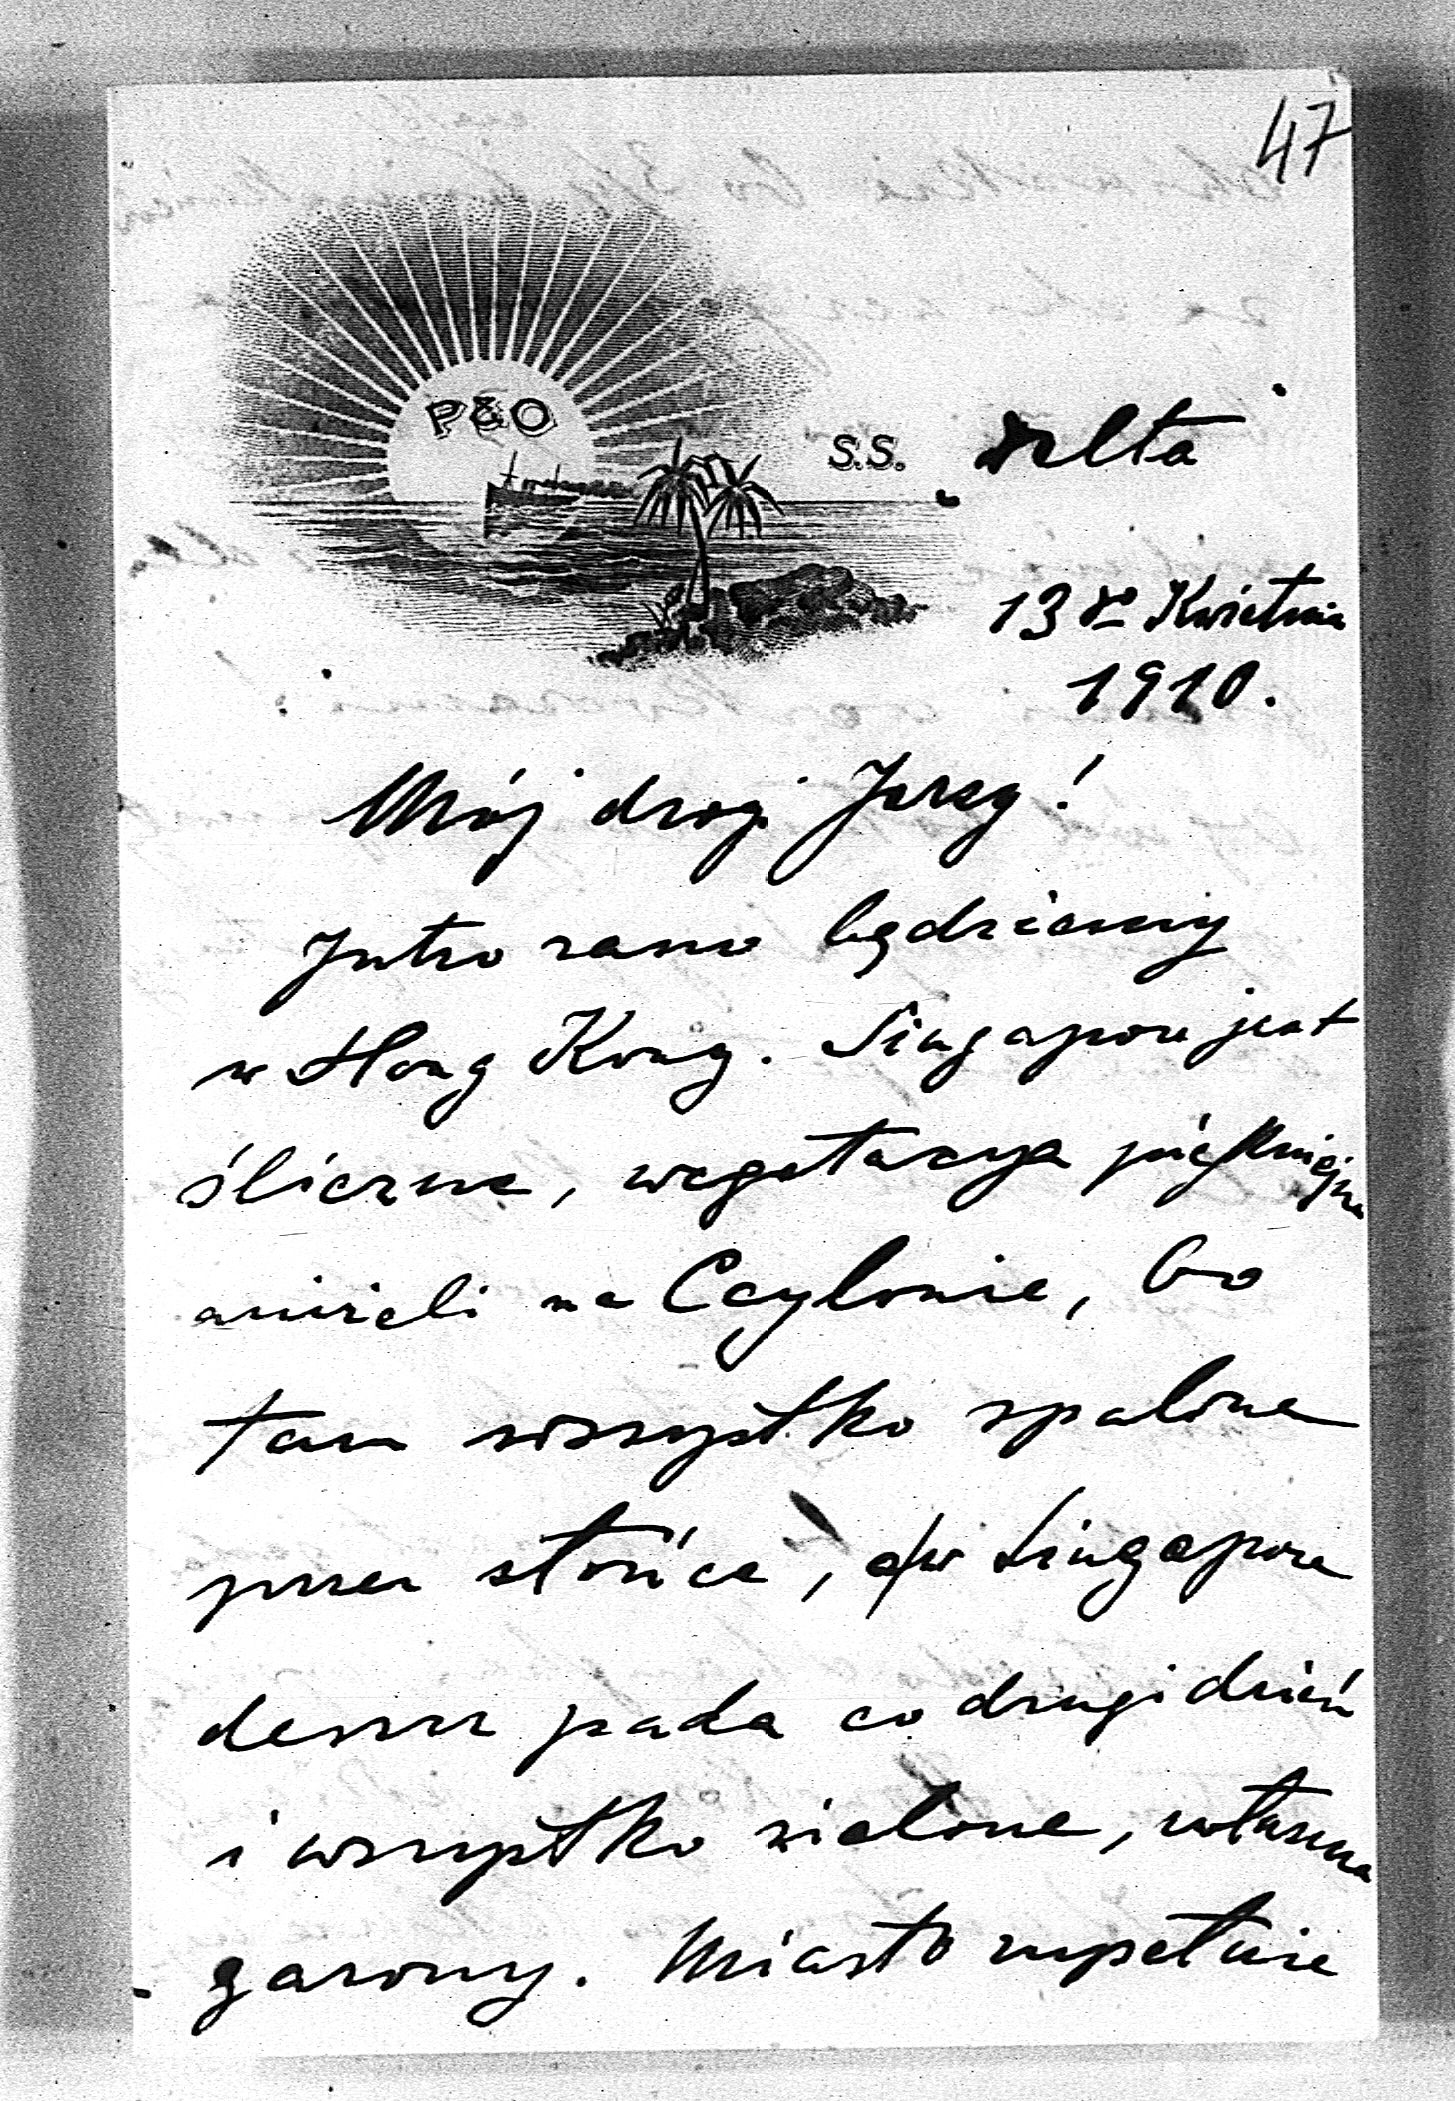 47
P&O
S.S. „Delta"
13go Kwietnia
1910.
Mój drogi Jerzy!
Jutro rano będziemy
w Hong Kong. Singapore jest
śliczne, wegetacya piękniejsza
aniżeli na Ceylonie, bo
tam wszystko spalone
przez słońce, a w Singapore
deszcz pada co drugi dzień
i wszystko zielone,
gazony. Miasto zupełnie